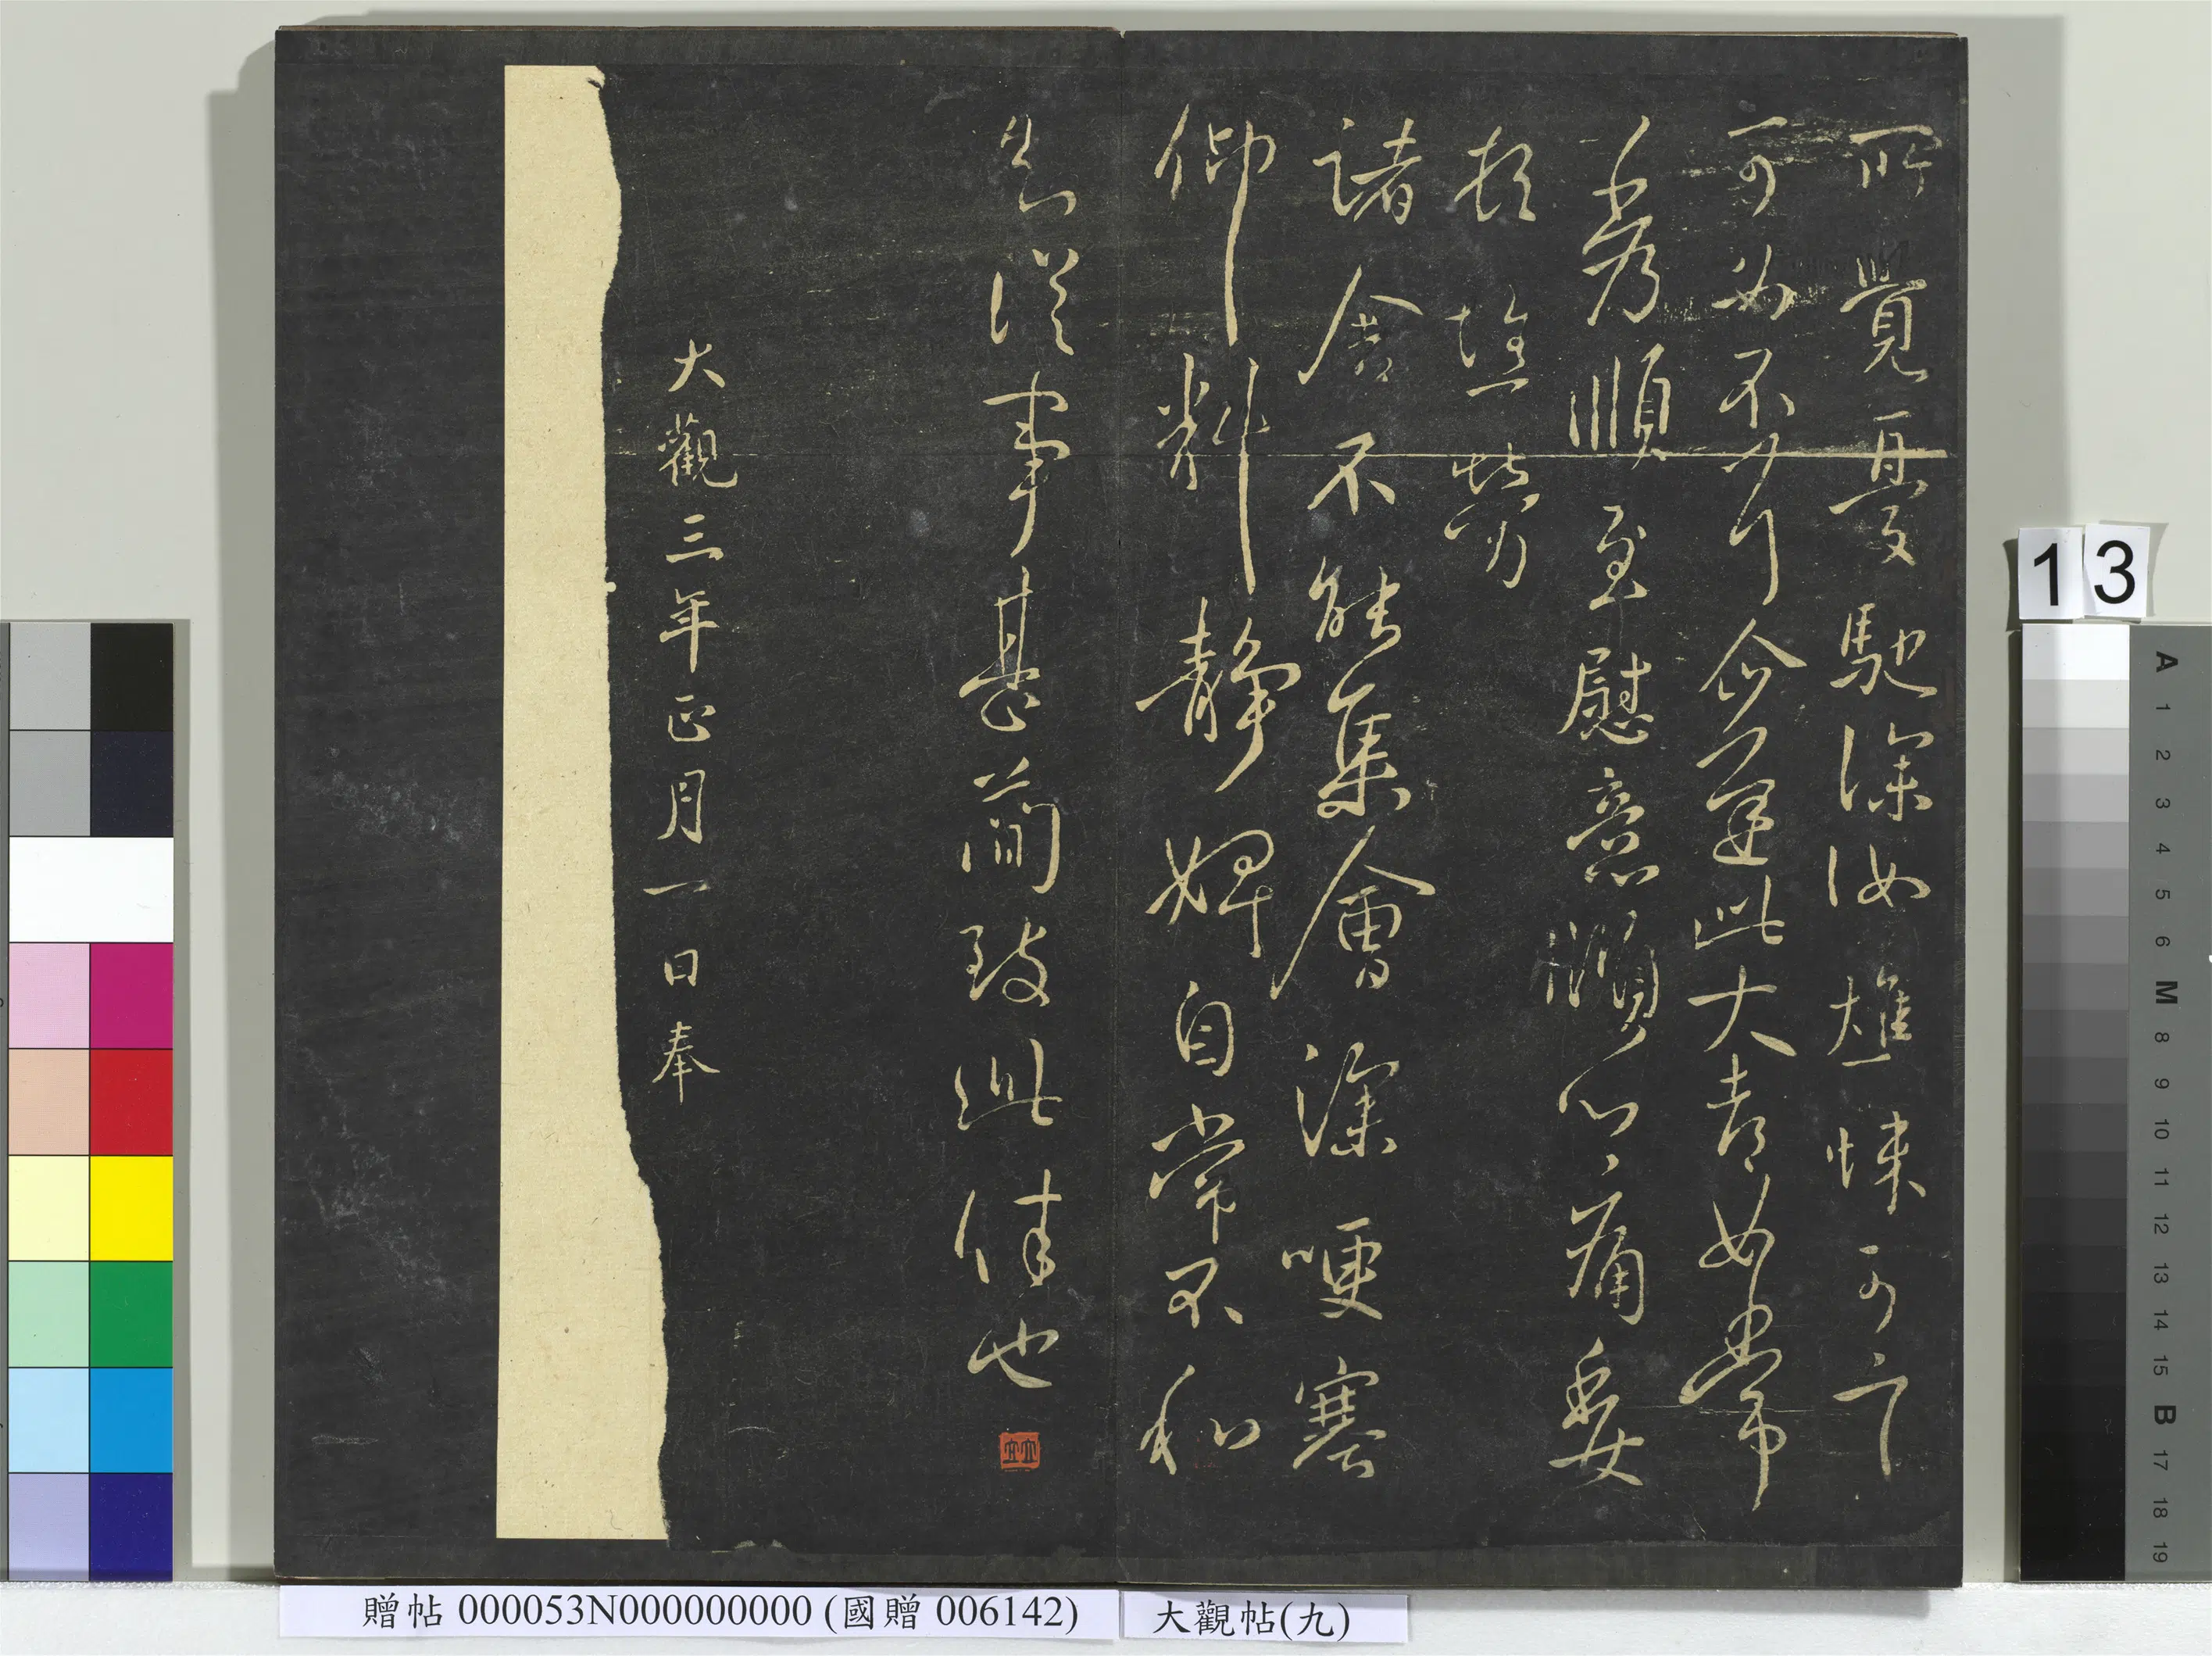 所覺憂馳深汝燋悚可言
可不此大都如常
秀順至慰意痛委
頓
諸舍不能集會深哽塞
仰料靜婢自常不和
知從事甚簡致此佳也
大觀三年正月一日奉
13
A 1 2 3 4 5 6 M 8 9 10 11 12 13 14 15 B 17 18 19
贈帖 000053N000000000 (國贈 006142)
大觀帖(九)